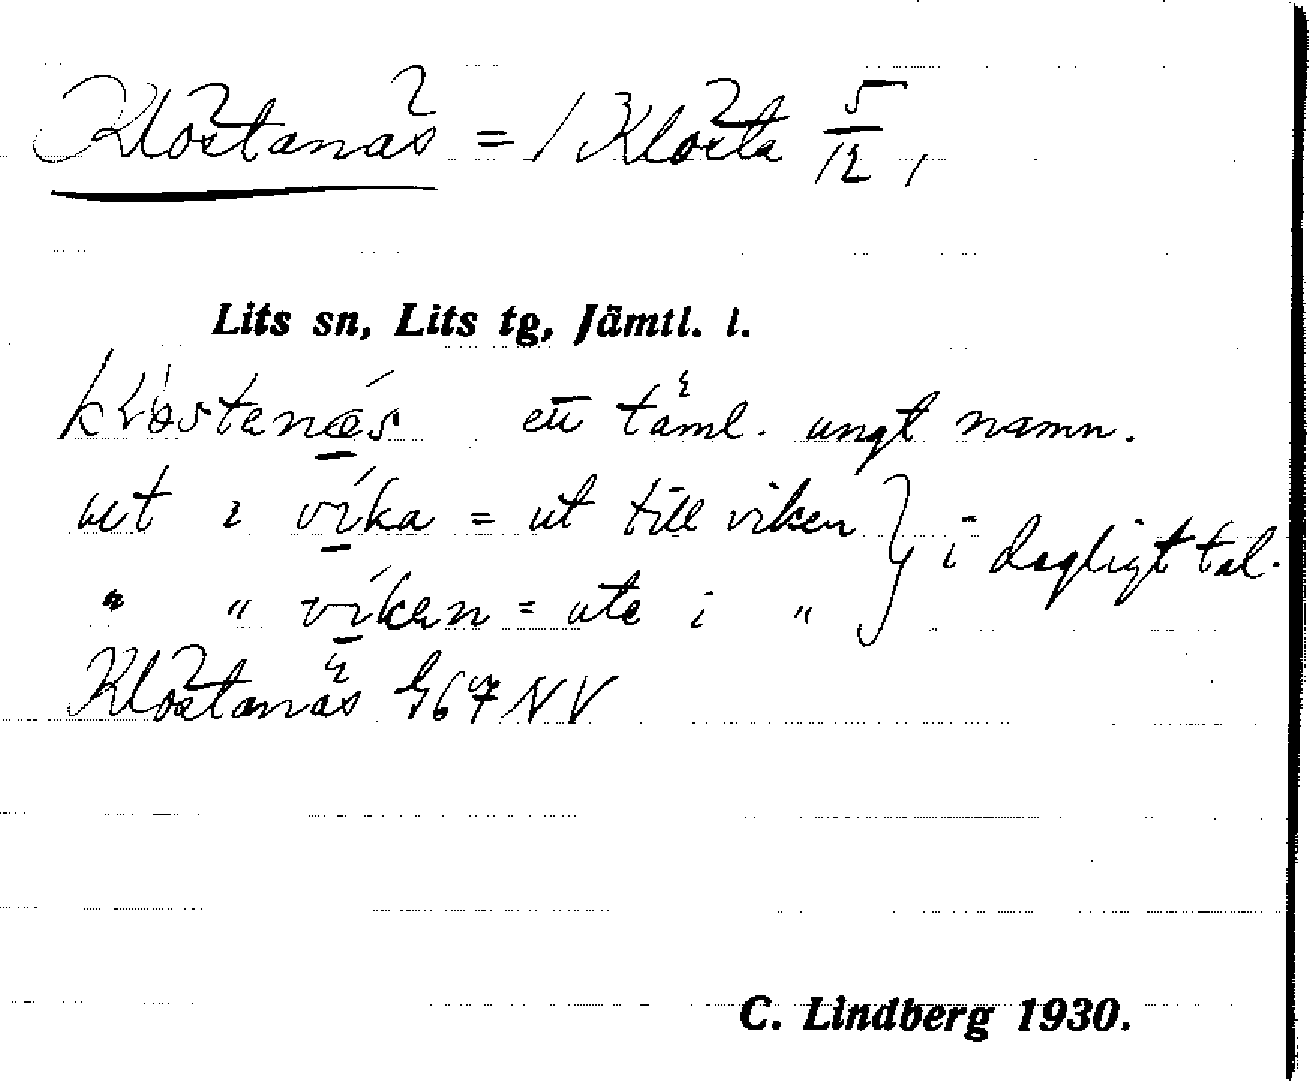 Klöstanäs = / Klösta 5/12,
Lits sn, Lits tg, Jämtl. l.
ett täml. ungt namn.
ut i víka = ut till viken } i dagligt tal.
" " víken = ute i "
Klöstanäs 67 NV
C. Lindberg 1930.